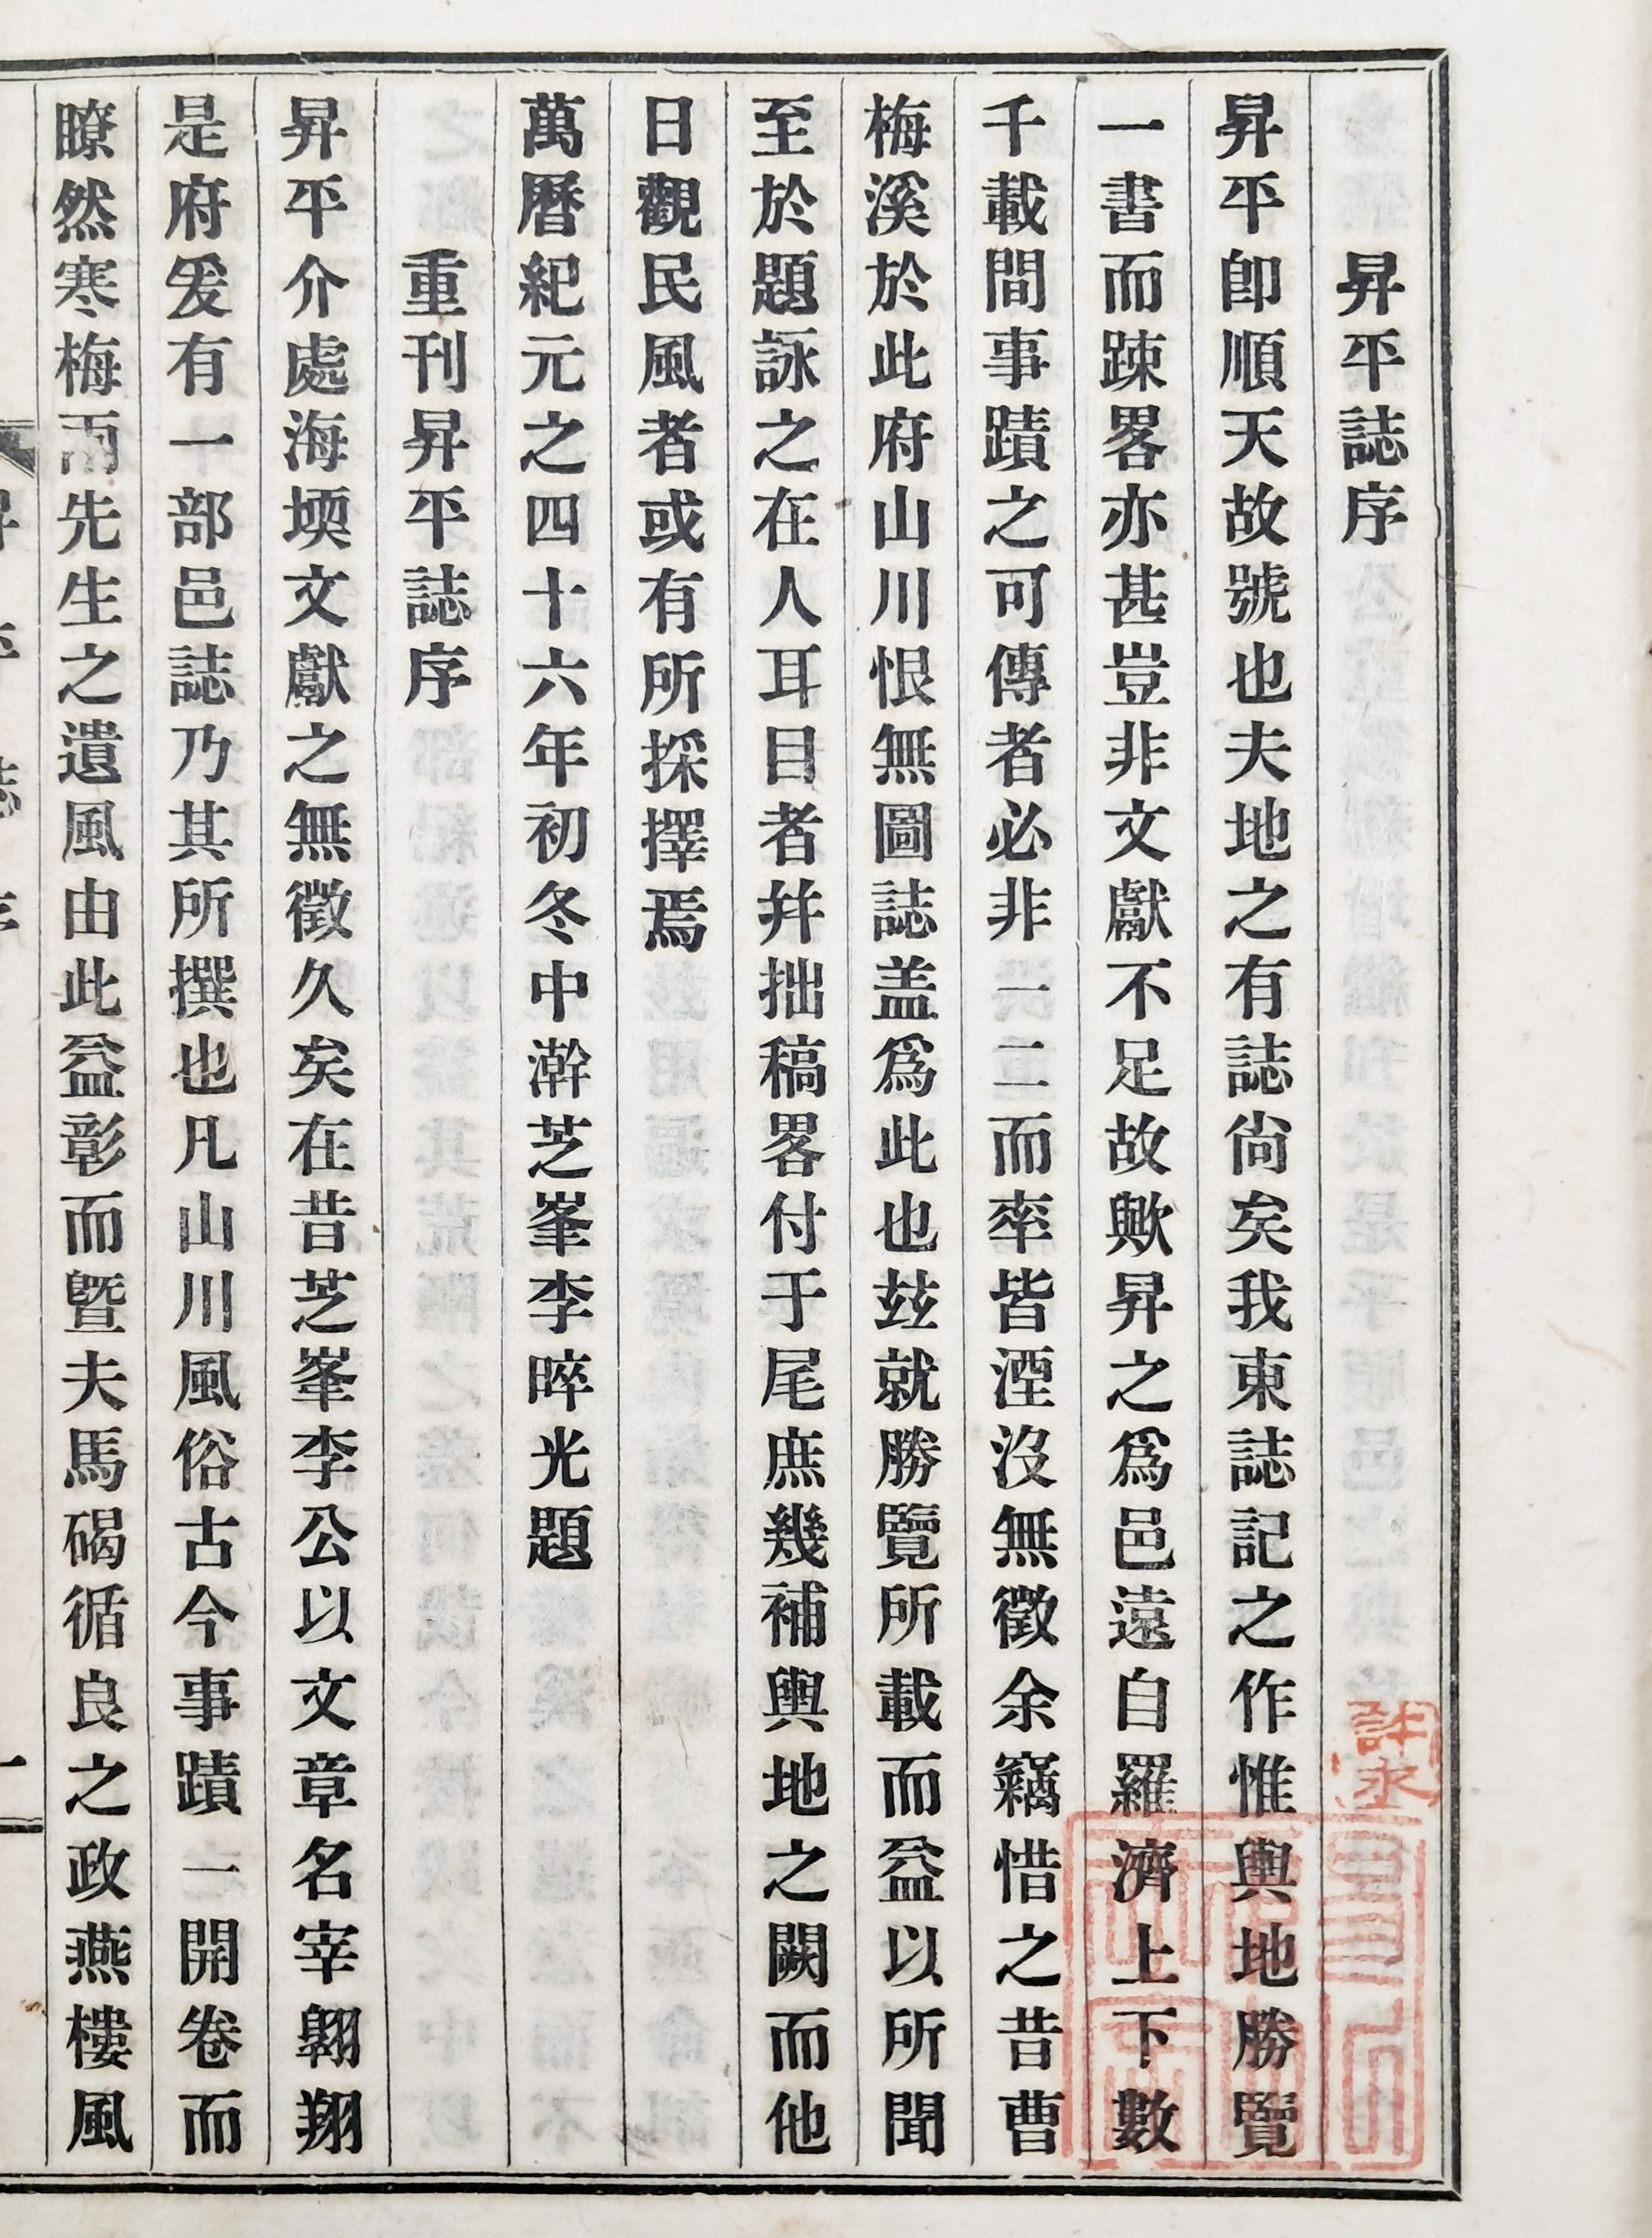 昇平誌序
昇平卽順天故號也夫地之有誌尙矣我東誌記之作惟輿地勝覽
一書而踈畧亦甚豈非文獻不足故歟昇之爲邑遠自羅濟上下數
千載間事蹟之可傳者必非一二而率皆湮沒無徵余竊惜之昔曹
梅溪於此府山川恨無圖誌盖爲此也玆就勝覽所載而益以所聞
至於題詠之在人耳目者幷拙稿畧付于尾庶幾補輿地之闕而他
日觀民風者或有所採擇焉
萬曆紀元之四十六年初冬中澣芝峯李晬光題
重刊昇平誌序
昇平介處海堧文獻之無徵久矣在昔芝峯李公以文章名宰翺翔
是府爰有一部邑誌乃其所撰也凡山川風俗古今事蹟一開卷而
瞭然寒梅雨先生之遺風由此益彰而曁夫馬碣循良之政燕樓風